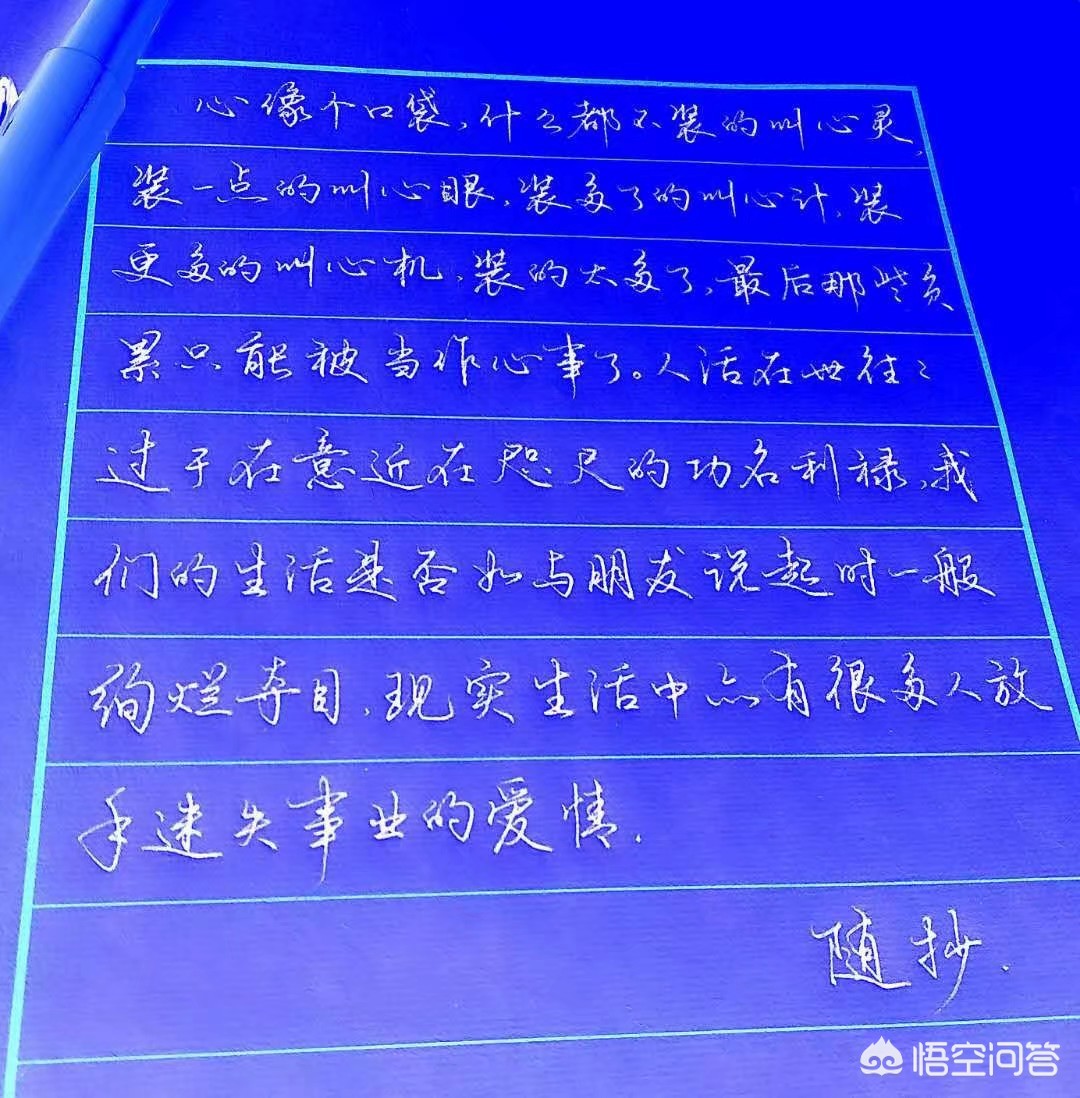 心像个口袋,什么都不装的叫心灵,
装一点的叫心眼,装多了的叫心计,装
更多的叫心机,装的太多了,最后那些负
累只能被当作心事了。人活在世往々
过于在意近在咫尺的功名利禄,我
们的生活是否如与朋友说起时一般
绚烂夺目,现实生活中亦有很多人放
手迷失事业的爱情.
随抄.
悟空问答